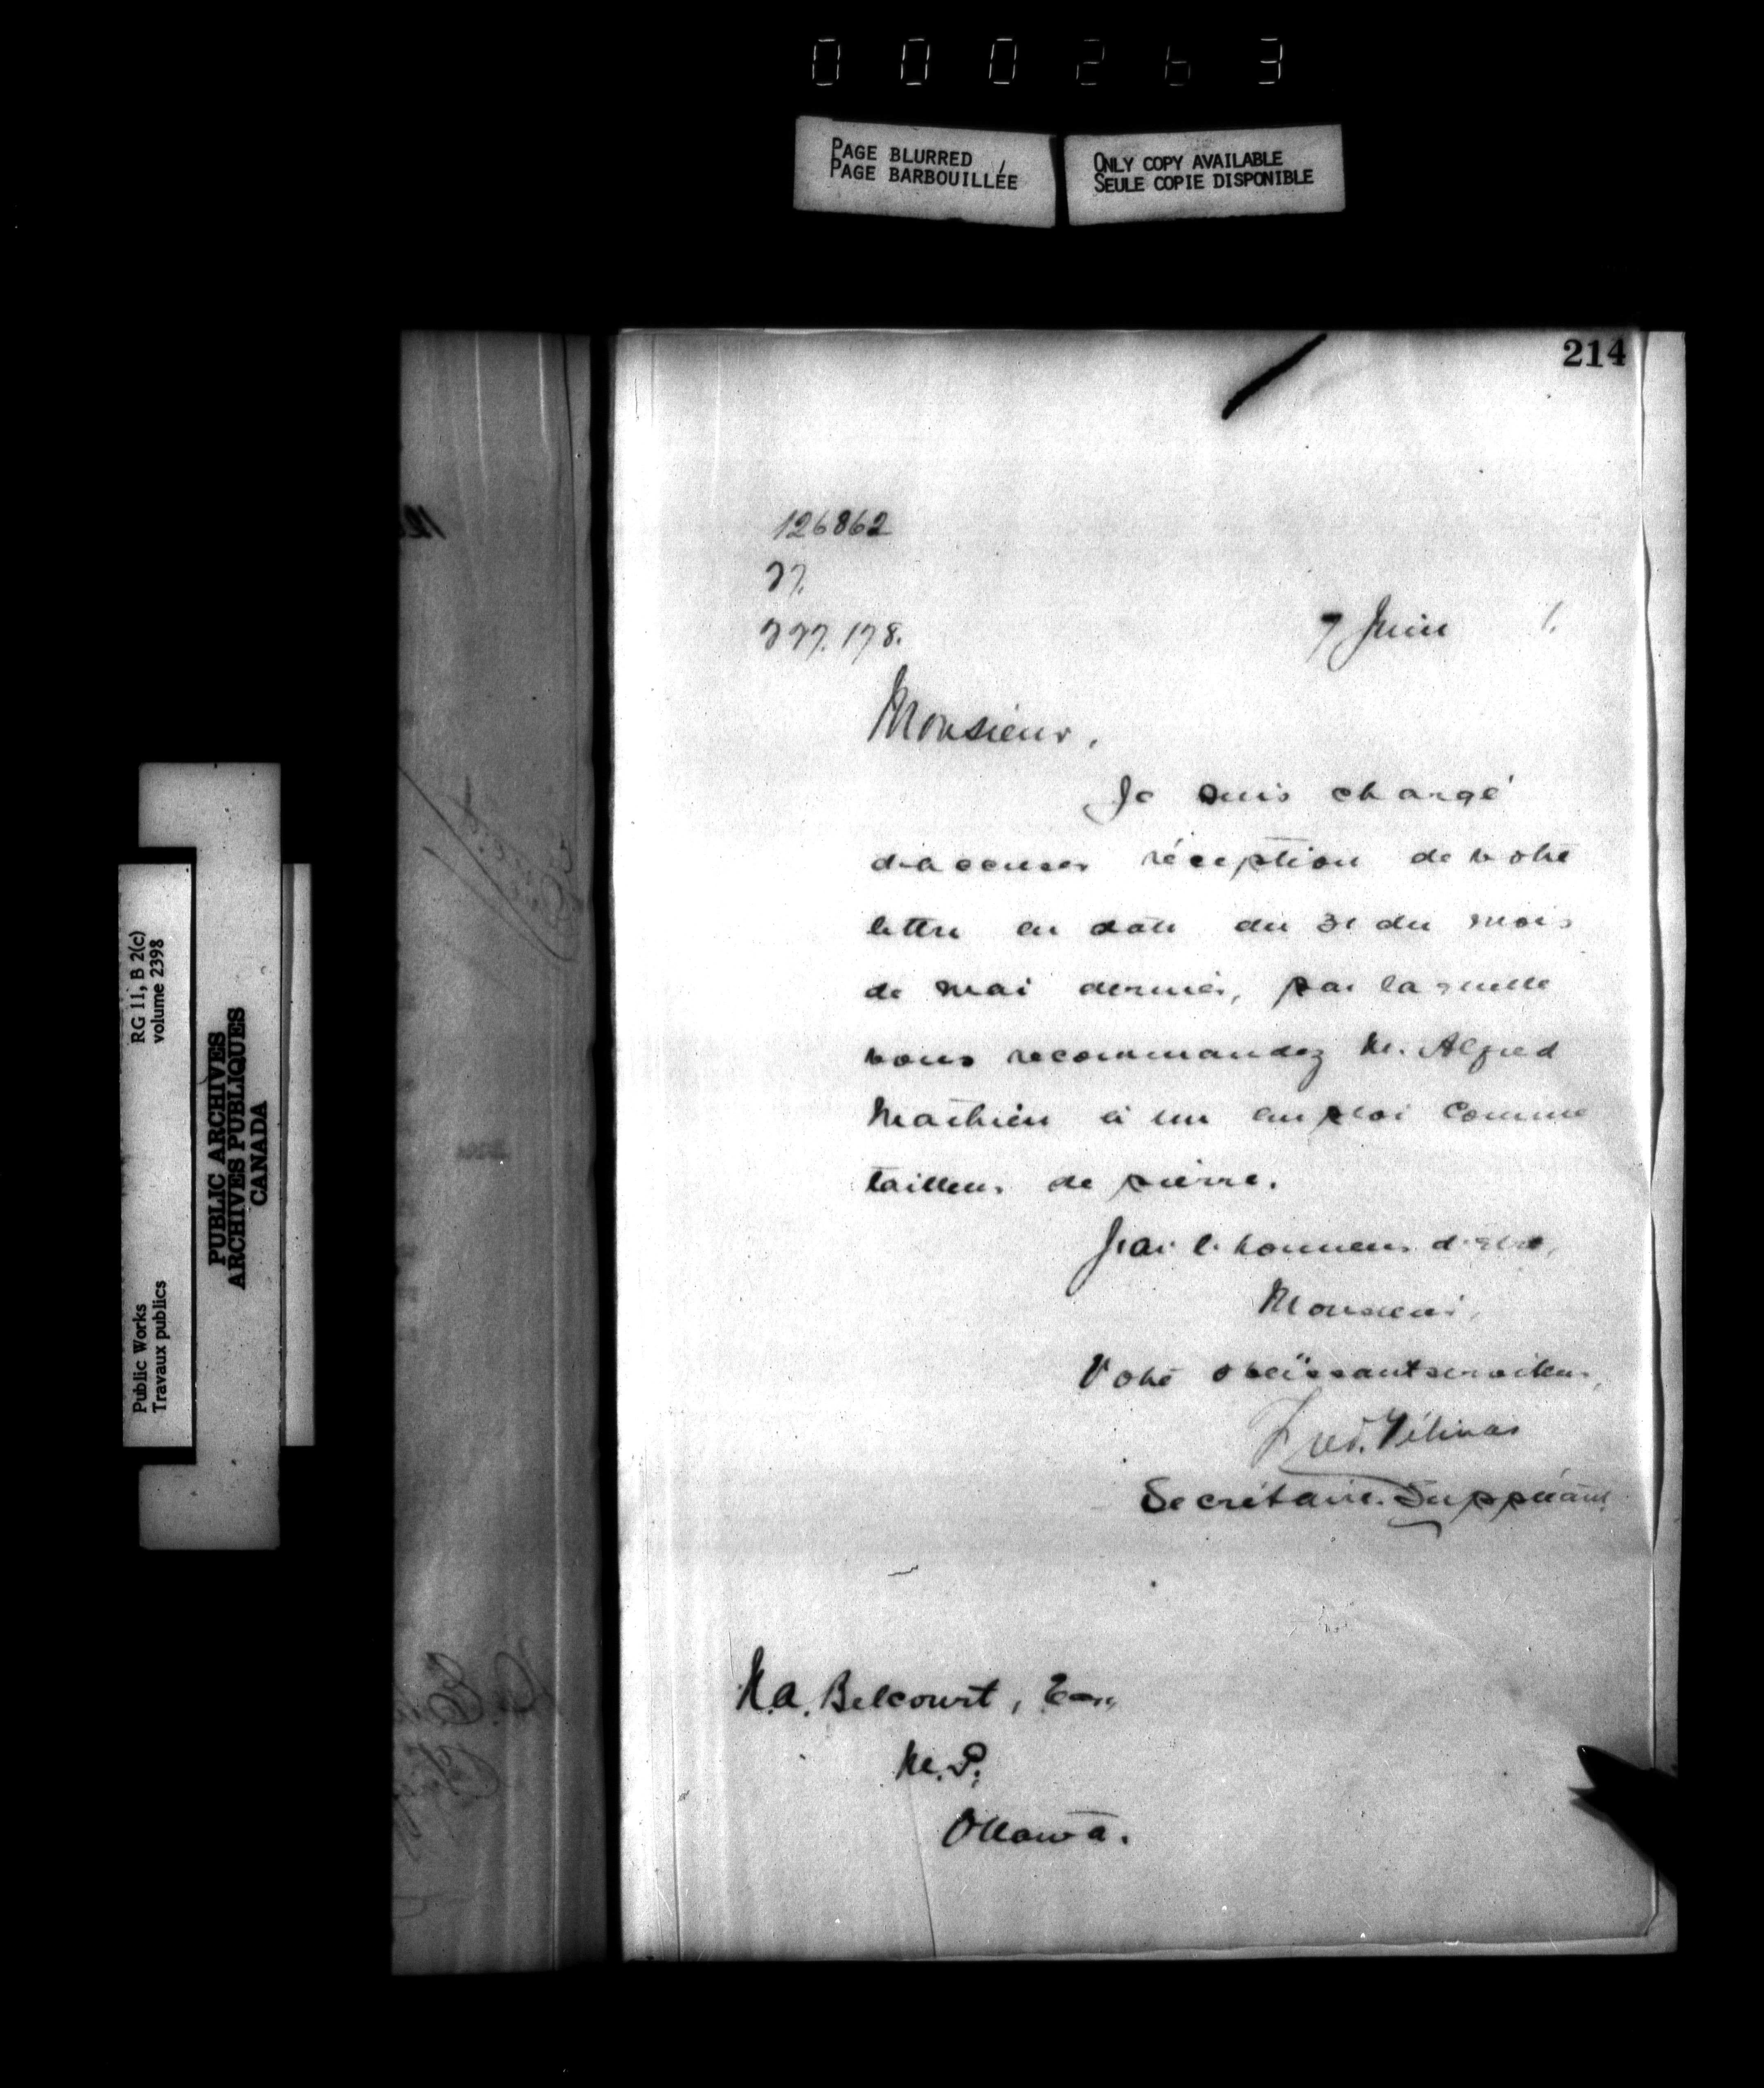 000263
PAGE BLURRED
PAGE BARBOUILLÉE
ONLY COPY AVAILABLE
SEULE COPIE DISPONIBLE
214
126862
77.
777. 178.
7 Juin 1.
Monsieur,
Je suis chargé
d'accuser réception de votre
lettre en date du 31 du mois
de mai dernier, par laquelle
vous recommandez M. Alfred
Mathieu à un emploi comme
tailleur de pierre.
J'ai l'honneur d'être,
Monsieur,
Votre obéissant serviteur,
Fred. Gélinas
Secrétaire Suppléant.
N.A. Belcourt, Esq.,
M.P.,
Ottawa.
RG 11, B 2(c)
volume 2398
Public Works
Travaux publics
PUBLIC ARCHIVES
ARCHIVES PUBLIQUES
CANADA